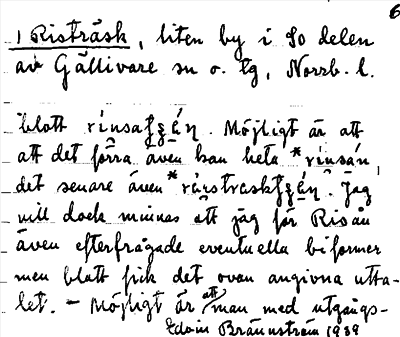 6
1 Risträsk, liten by i So delen
av Gällivare sn o. lg, Norrb. l.
blott
Möjligt är att
att det förra även kan heta *rinsán,
det senare även
Jag
vill dock minnas att jag för Risån
även efterfrågade eventuella biformer
men blott fick det ovan angivna utta-
let. – Möjligt är att man med utgångs-
Edvin Brännström 1939